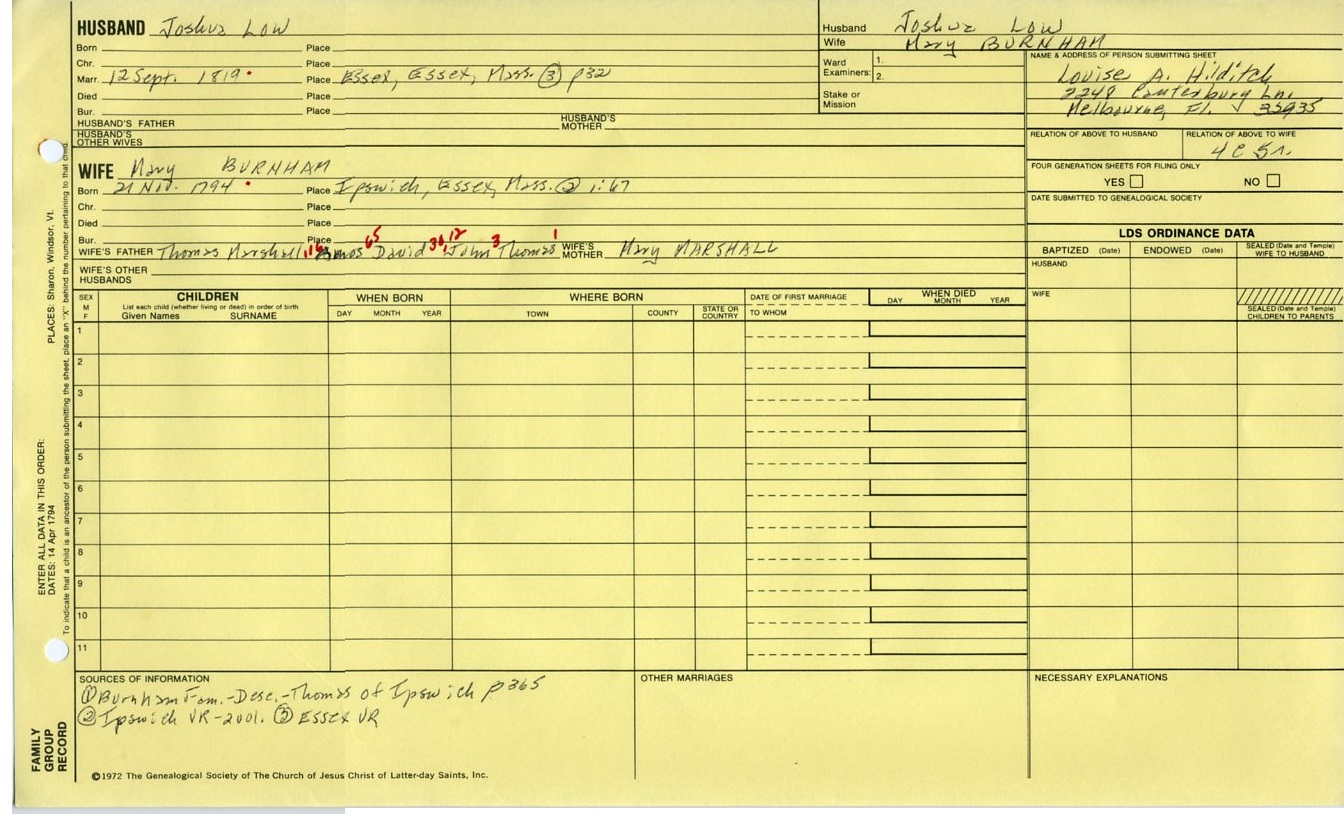 HUSBAND Joshua Low
Born Place
Chr. Place
Marr. 12 Sept. 1819 Place Essex, Essex, Mass. ③ p32
Died Place
Bur. Place
HUSBAND'S FATHER HUSBAND'S MOTHER
HUSBAND'S OTHER WIVES
WIFE Mary BURNHAM
Born 21 Nov. 1794 Place Ipswich, Essex, Mass. ② 1:67
Chr. Place
Died Place
Bur. Place
65 30,12 3 1
WIFE'S FATHER Thomas Marshall, Amos David John Thomas WIFE'S MOTHER Mary MARSHALL
WIFE'S OTHER HUSBANDS
Husband Joshua Low
Wife Mary BURNHAM
Ward Examiners: 1.
2.
Stake or Mission
NAME & ADDRESS OF PERSON SUBMITTING SHEET
Louise A. Hilditch
2248 Canterbury Ln.
Melbourne, Fl. 32935
RELATION OF ABOVE TO HUSBAND RELATION OF ABOVE TO WIFE
4C 5r.
FOUR GENERATION SHEETS FOR FILING ONLY
YES NO
DATE SUBMITTED TO GENEALOGICAL SOCIETY
LDS ORDINANCE DATA
BAPTIZED (Date) ENDOWED (Date) SEALED (Date and Temple) WIFE TO HUSBAND
HUSBAND
WIFE
SEALED (Date and Temple) CHILDREN TO PARENTS
SEX M F
CHILDREN
List each child (whether living or dead) in order of birth
Given Names SURNAME
WHEN BORN
DAY MONTH YEAR
WHERE BORN
TOWN COUNTY STATE OR COUNTRY
DATE OF FIRST MARRIAGE
TO WHOM
WHEN DIED
DAY MONTH YEAR
1
2
3
4
5
6
7
8
9
10
11
SOURCES OF INFORMATION
① Burnham Fam.-Desc.-Thomas of Ipswich p365
② Ipswich VR-2001. ③ ESSEX VR
OTHER MARRIAGES
NECESSARY EXPLANATIONS
©1972 The Genealogical Society of The Church of Jesus Christ of Latter-day Saints, Inc.
FAMILY GROUP RECORD
ENTER ALL DATA IN THIS ORDER:
DATES: 14 Apr 1794
PLACES: Sharon, Windsor, Vt.
To indicate that a child is an ancestor of the person submitting the sheet, place an "X" behind the number pertaining to that child.